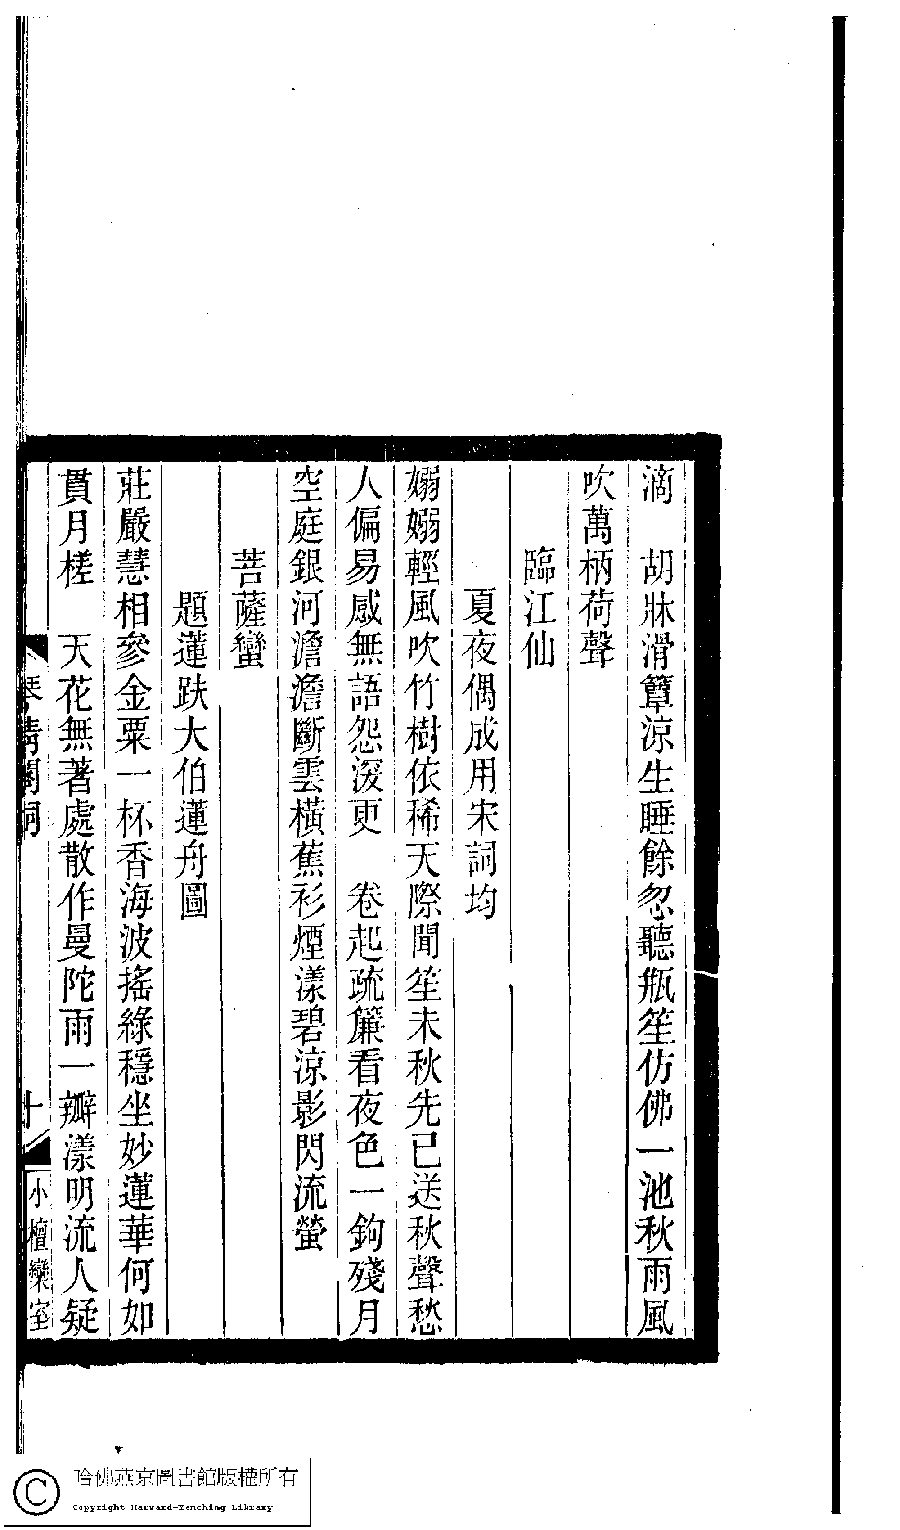 滴　胡牀滑簟涼生睡餘忽聽瓶笙仿佛一池秋雨風
吹萬柄荷聲
臨江仙
夏夜偶成用宋詞均
嫋嫋輕風吹竹樹依稀天際聞笙未秋先已送秋聲愁
人偏易感無語怨深更　卷起疏簾看夜色一鉤殘月
空庭銀河澹澹斷雲橫蕉衫煙漾碧涼影閃流螢
菩薩蠻
題蓮趺大伯蓮舟圖
莊嚴慧相參金粟一杯香海波搖綠穩坐妙蓮華何如
貫月槎　天花無著處散作曼陀雨一瓣漾明流人疑
琴清閣詞
十
小檀欒室
哈佛燕京圖書館版權所有
Copyright Harvard-Yenching Library